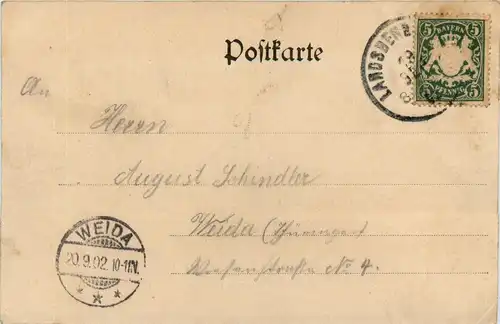 Postkarte
LANDSBER
5 BAYERN 5
PFENNIG
An
Herrn
August Schindler
Weida (Thüringen)
Wiesenstraße No 4.
WEIDA
20.9.02. 10-11N.